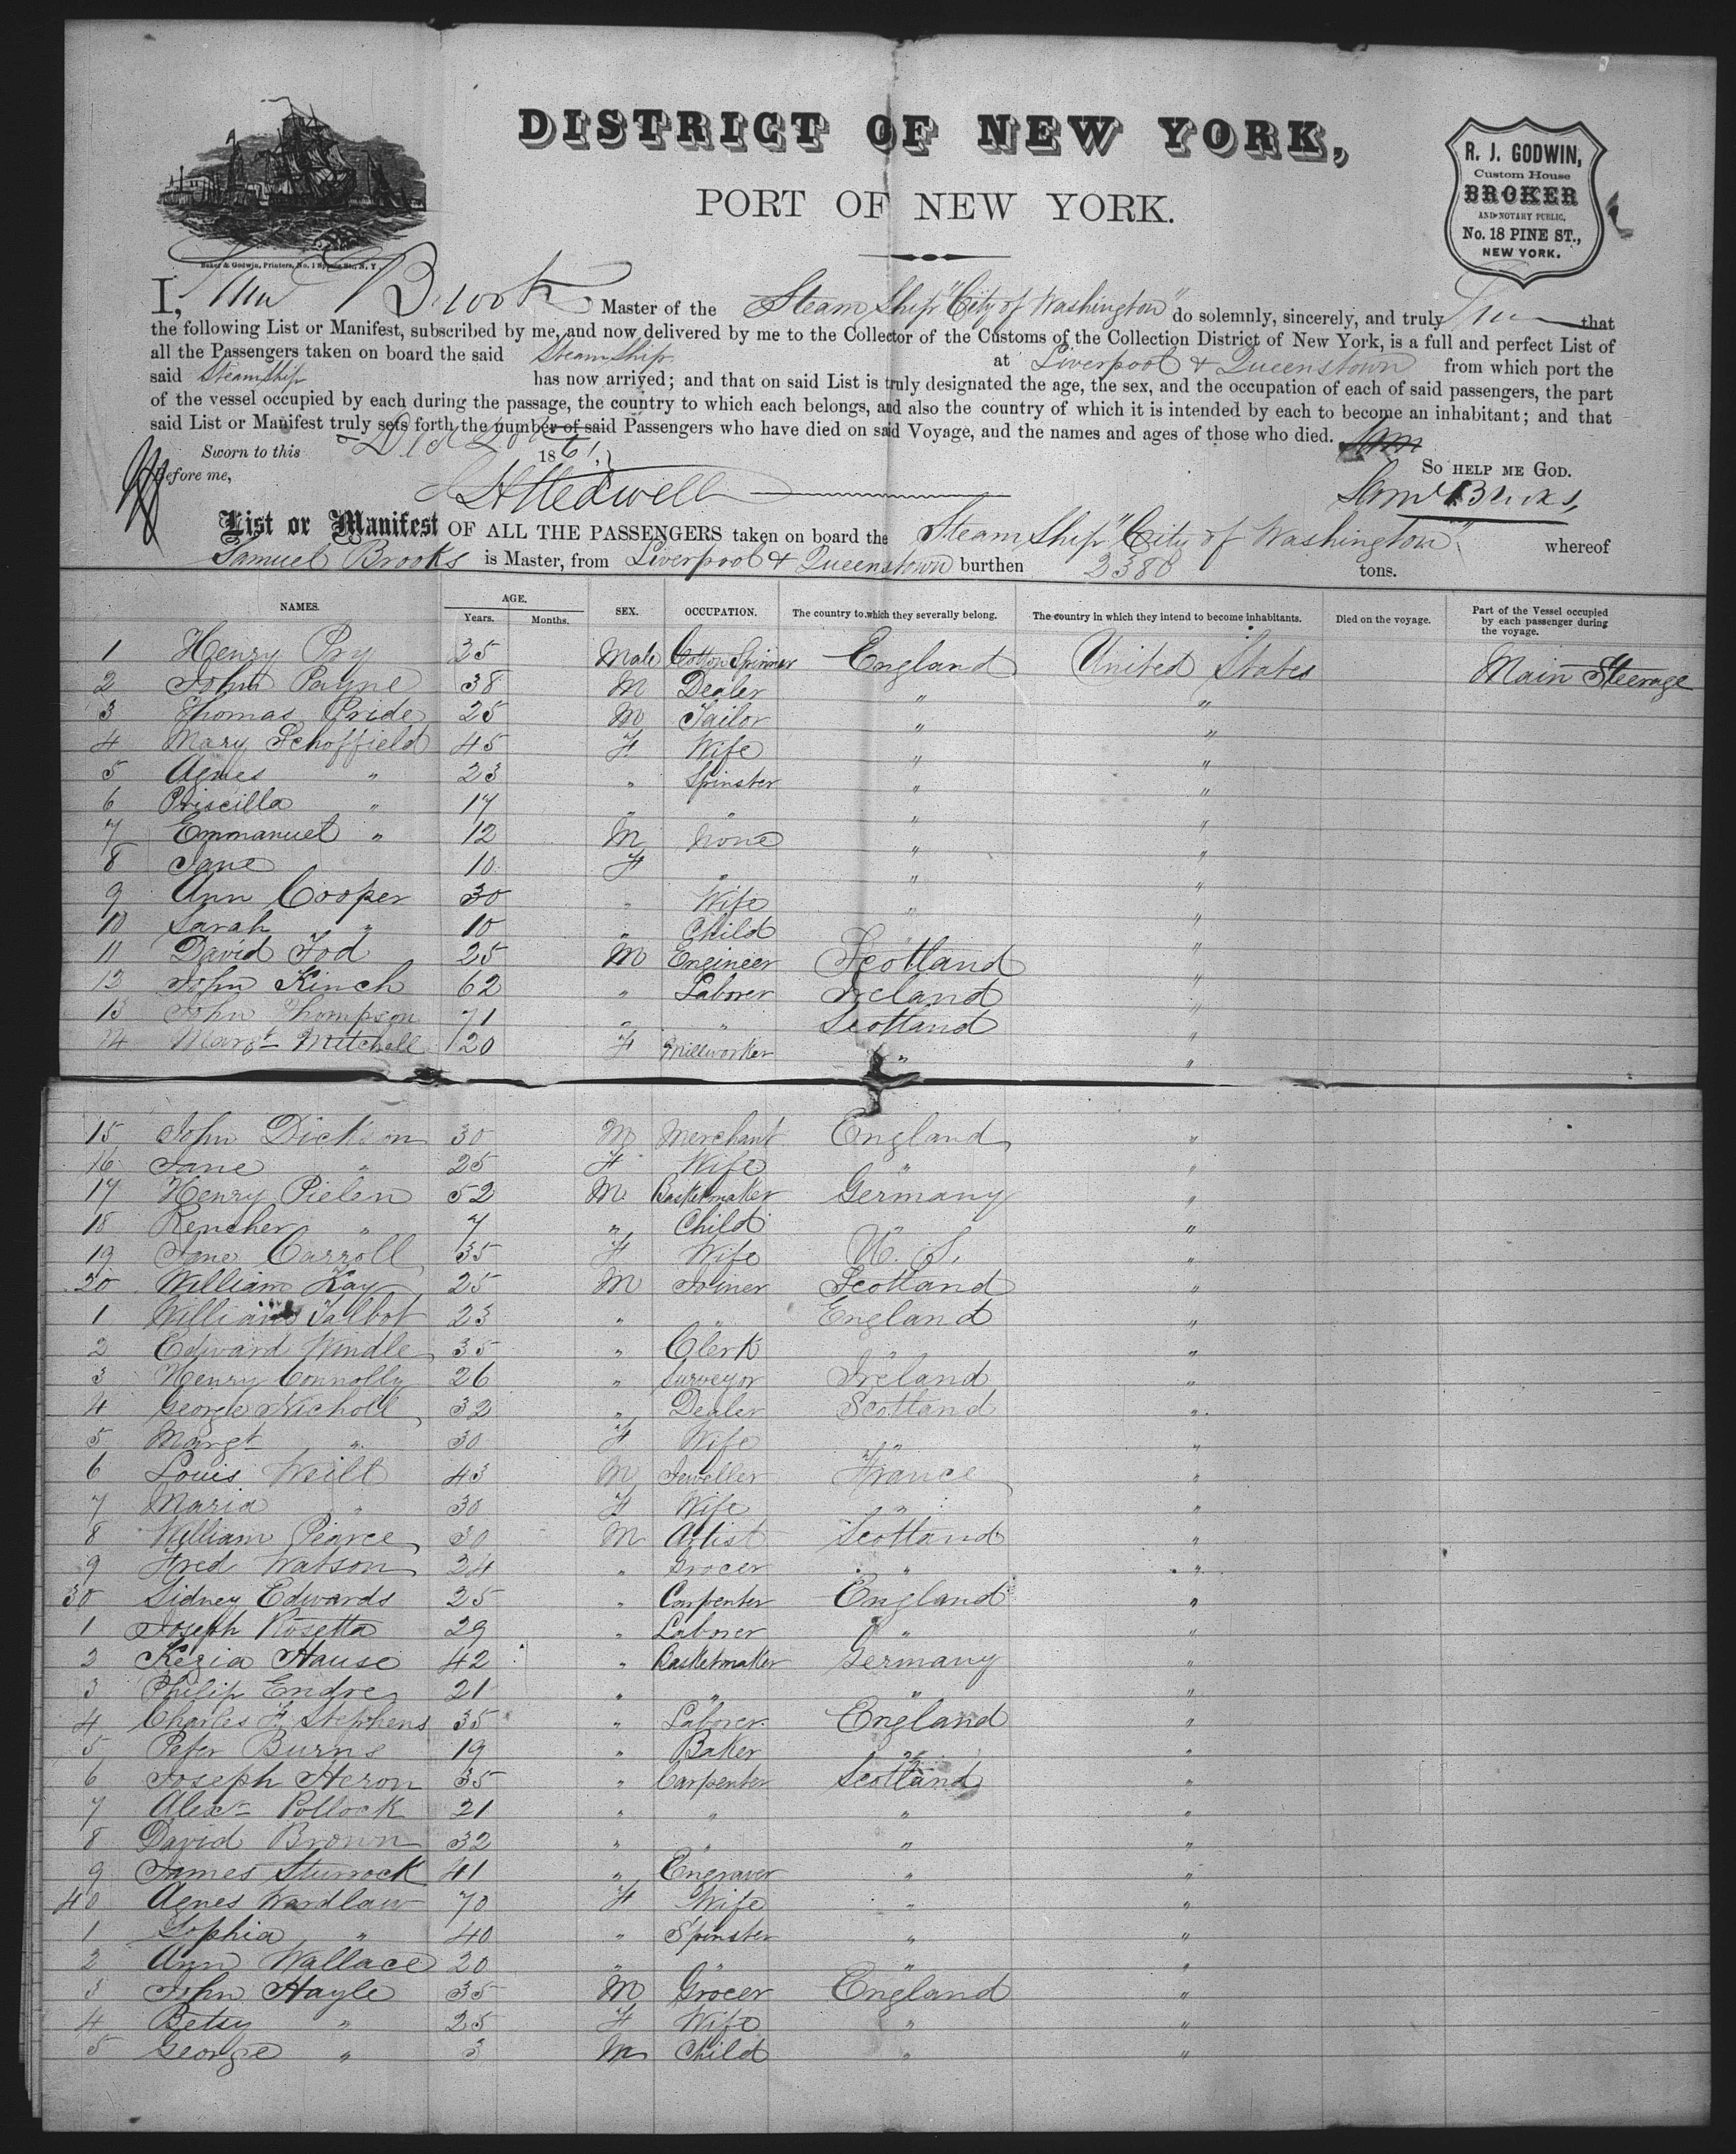 DISTRICT OF NEW YORK,
PORT OF NEW YORK.
R. J. GODWIN,
Custom House
BROKER
AND NOTARY PUBLIC,
No. 18 PINE ST.,
NEW YORK.
Baker & Godwin, Printers, No. 1 Spruce St., N. Y.
I, Brooks Master of the Steam Ship "City of Washington" do solemnly, sincerely, and truly that
the following List or Manifest, subscribed by me, and now delivered by me to the Collector of the Customs of the Collection District of New York, is a full and perfect List of
all the Passengers taken on board the said Steam Ship at Liverpool & Queenstown from which port the
said Steam Ship has now arrived; and that on said List is truly designated the age, the sex, and the occupation of each of said passengers, the part
of the vessel occupied by each during the passage, the country to which each belongs, and also the country of which it is intended by each to become an inhabitant; and that
said List or Manifest truly sets forth the number of said Passengers who have died on said Voyage, and the names and ages of those who died.
Sworn to this 1861,
Before me,
SO HELP ME GOD.
Saml Brooks,
List or Manifest OF ALL THE PASSENGERS taken on board the Steam Ship "City of Washington" whereof
Samuel Brooks is Master, from Liverpool & Queenstown burthen 2380 tons.
NAMES. AGE. Years. Months. SEX. OCCUPATION. The country to which they severally belong. The country in which they intend to become inhabitants. Died on the voyage. Part of the Vessel occupied by each passenger during the voyage.
1 Henry Pry 35 Male Cotton Spinner England United States Main Steerage
2 John Payne 38 M Dealer " "
3 Thomas Pride 25 M Tailor " "
4 Mary Schoffield 45 F Wife " "
5 Agnes " 23 " Spinster " "
6 Priscilla " 17 " " " "
7 Emmanuel " 12 M None " "
8 Jane 10 F " " "
9 Ann Cooper 30 " Wife " "
10 Sarah " 10 " Child " "
11 David Tod 25 M Engineer Scotland "
12 John Kinch 62 " Laborer Ireland "
13 John Thompson 71 " " Scotland "
14 Margt Mitchell 20 F Millworker " "
15 John Dickson 30 M Merchant England "
16 Jane " 25 F Wife " "
17 Henry Pielen 52 M Basketmaker Germany "
18 Rencher " 7 " Child "
19 Jane Carroll 35 F Wife U. S. "
20 William Kay 25 M Joiner Scotland "
1 William Talbot 23 " " England "
2 Edward Windle 35 " Clerk " "
3 Henry Connolly 26 " Surveyor Ireland "
4 George Nicholl 32 " Dealer Scotland "
5 Margt " 30 F Wife " "
6 Louis Weill 43 M Jeweller France "
7 Maria " 30 F Wife " "
8 William Pearce 30 M Artist Scotland "
9 Fred Watson 24 " Grocer " "
30 Sidney Edwards 25 " Carpenter England "
1 Joseph Rosetta 29 " Laborer " "
2 Kezia Hause 42 " Basketmaker Germany "
3 Philip Endres 21 " " " "
4 Charles F. Stephens 35 " Laborer England "
5 Peter Burns 19 " Baker " "
6 Joseph Heron 35 " Carpenter Scotland "
7 Alexr Pollock 21 " " " "
8 David Brown 32 " " " "
9 James Sturrock 41 " Engraver " "
40 Agnes Wardlaw 70 F Wife " "
1 Sophia " 40 " Spinster " "
2 Ann Wallace 20 " " " "
3 John Hayle 35 M Grocer England "
4 Betsy " 25 F Wife " "
5 George " 3 M Child " "